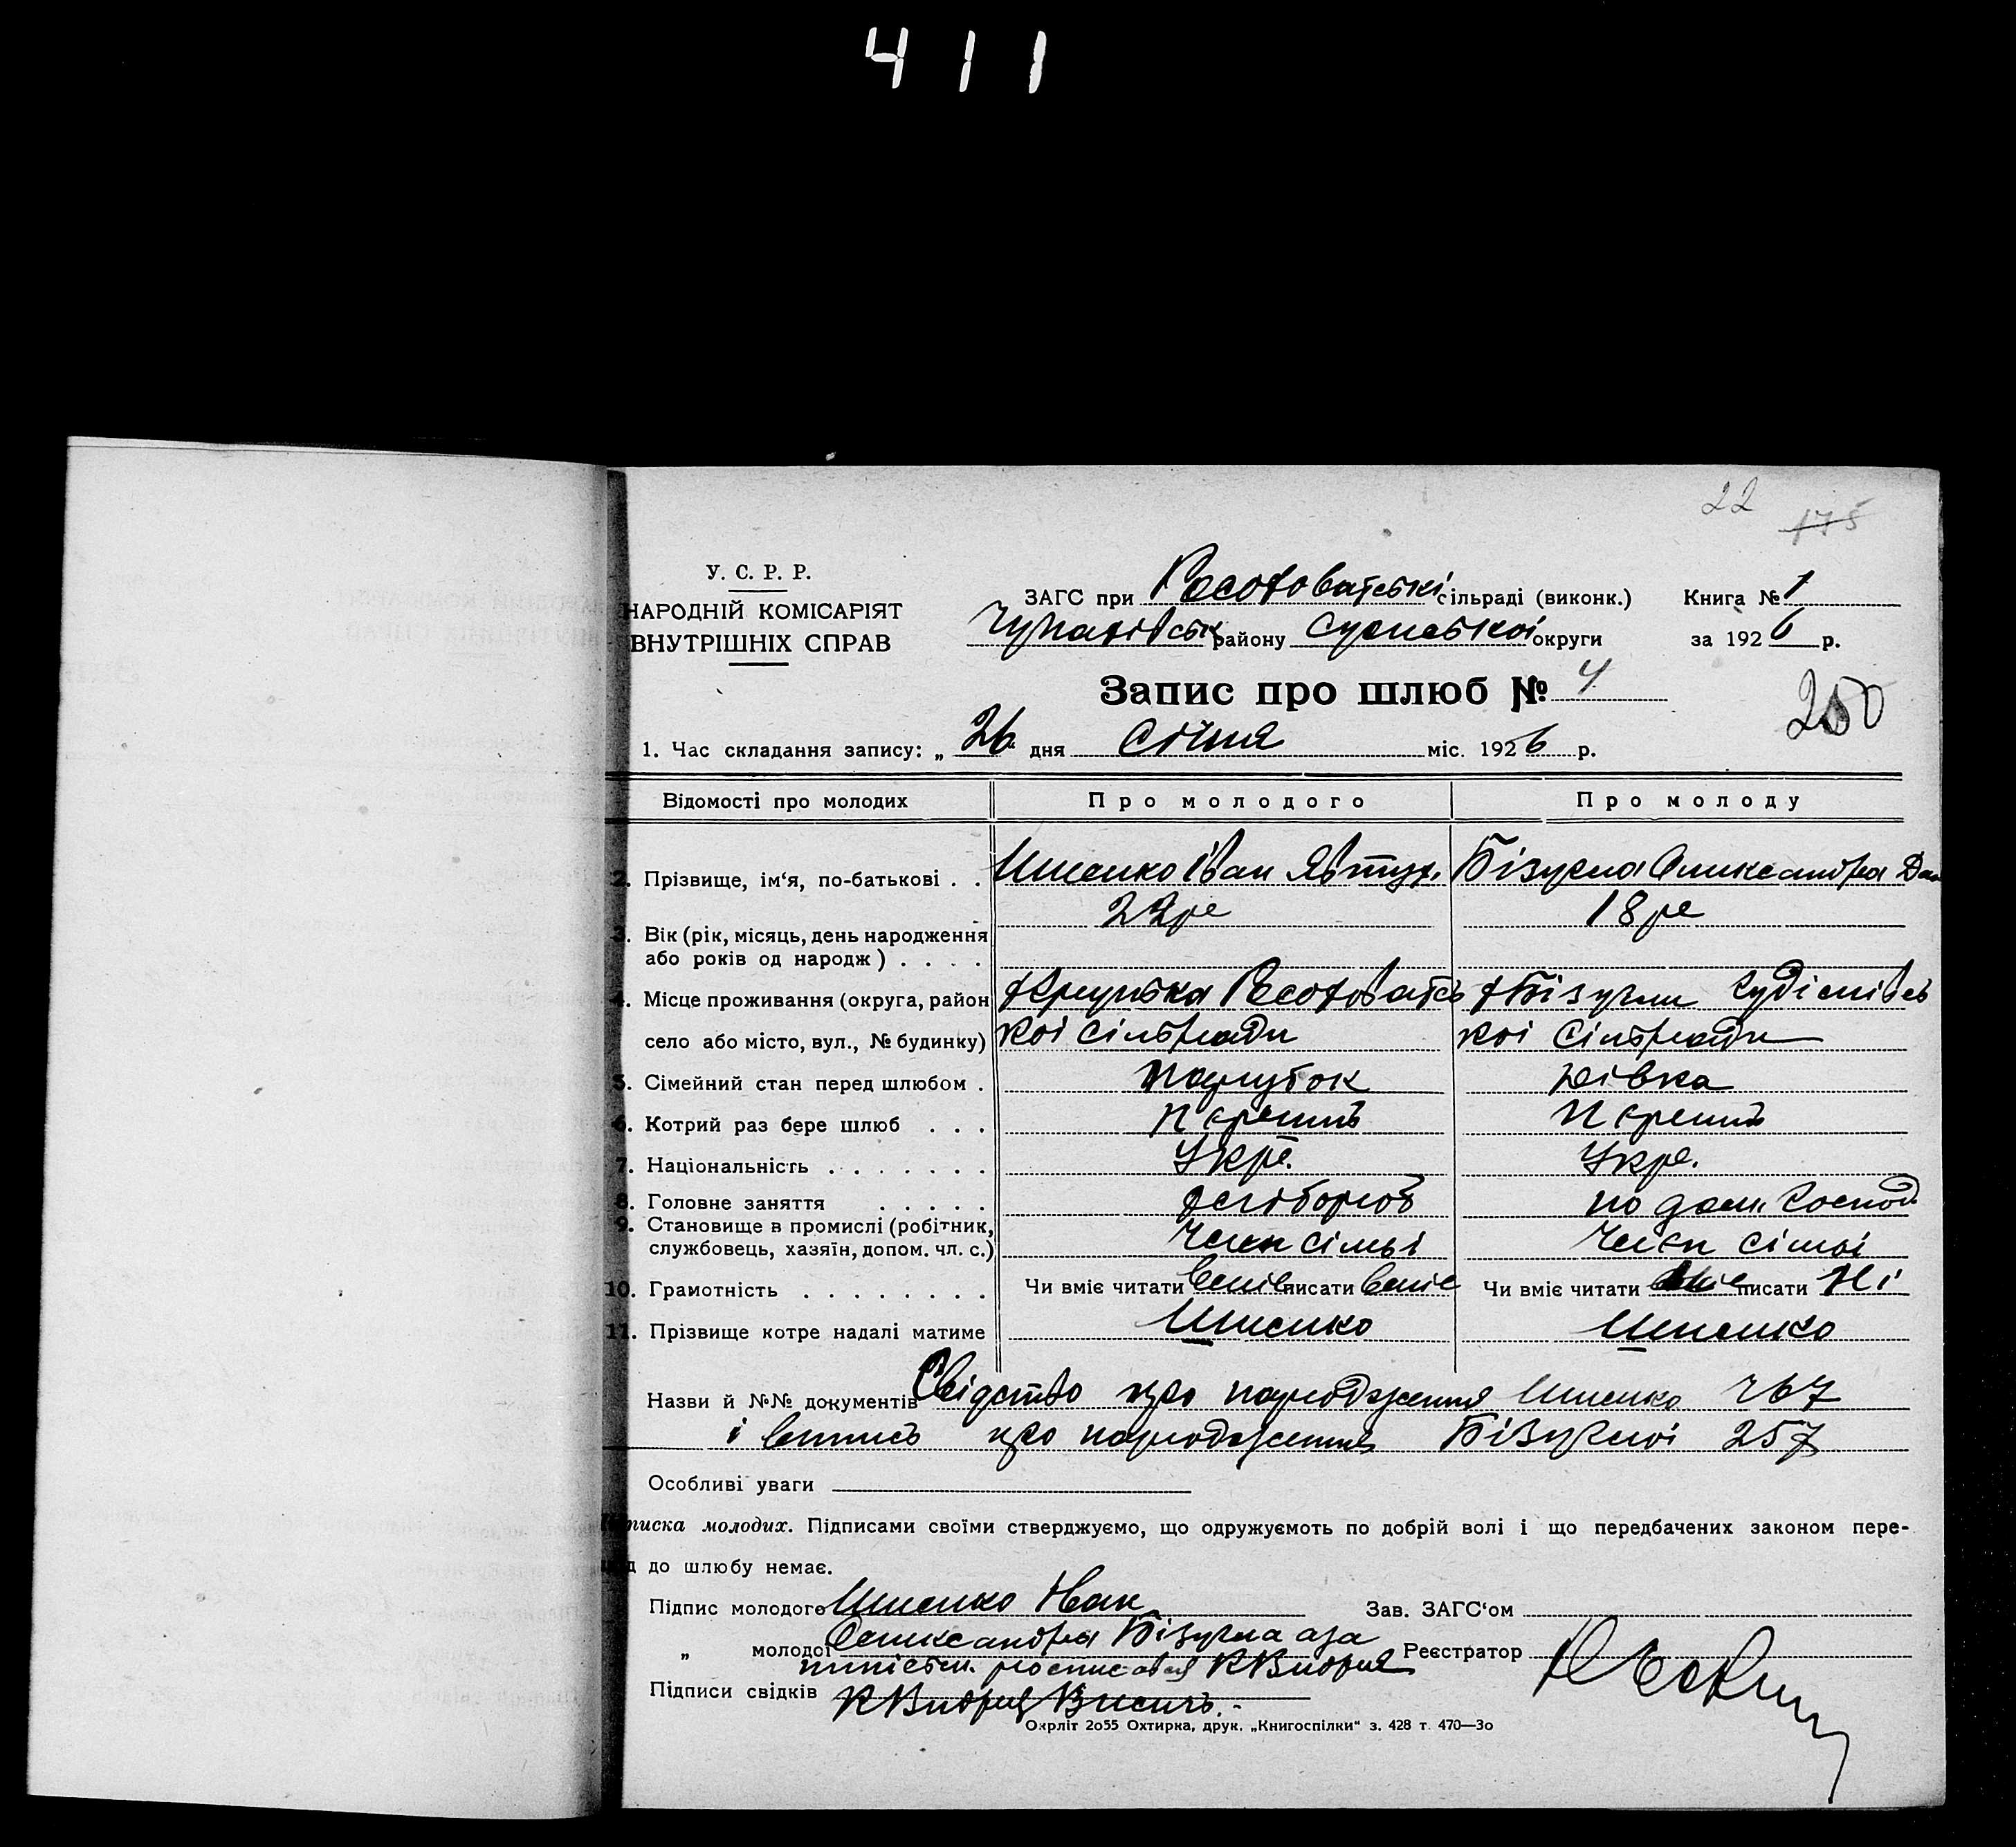 411
22
175
У. С. Р. Р.
НАРОДНІЙ КОМІСАРІЯТ
ВНУТРІШНІХ СПРАВ
ЗАГС при сільраді (виконк.) Книга № 1
Чупахівськ району Сумської округи за 1926 р.
Запис про шлюб № 4
250
1. Час складання запису: „ 26 дня Січня міс. 1926 р.
Відомості про молодих Про молодого Про молоду
2. Прізвище, ім‘я, по-батькові . . Іван Явтух. Бізукла Олександра Дан
22 рс 18 рс
3. Вік (рік, місяць, день народження
або років од народж) . . . .
4. Місце проживання (округа, район
село або місто, вул., № будинку) кої сільради кої сільради
5. Сімейний стан перед шлюбом . парубок дівка
6. Котрий раз бере шлюб . . . перший перший
7. Національність . . . . . . . Укр. Укр.
8. Головне заняття . . . . . хлібороб по дом. господ
9. Становище в промислі (робітник,
службовець, хазяїн, допом. чл. с.) Член сімьі Член сімьі
10. Грамотність . . . . . . . . Чи вміє читати вміє писати вміє Чи вміє читати вміє писати Ні
11. Прізвище котре надалі матиме
Назви й №№ документів Свідство про народження 767
і випись про народження 257
Особливі уваги
писка молодих. Підписами своїми стверджуємо, що одружуємоть по добрій волі і що передбачених законом пере-
д до шлюбу немає.
Підпис молодого Зав. ЗАГС‘ом
„ молодої Олександра Бізукла а за Реєстратор
Підписи свідків
Окрліт 2о55 Охтирка, друк. „Книгоспілки“ з. 428 т. 470—3о